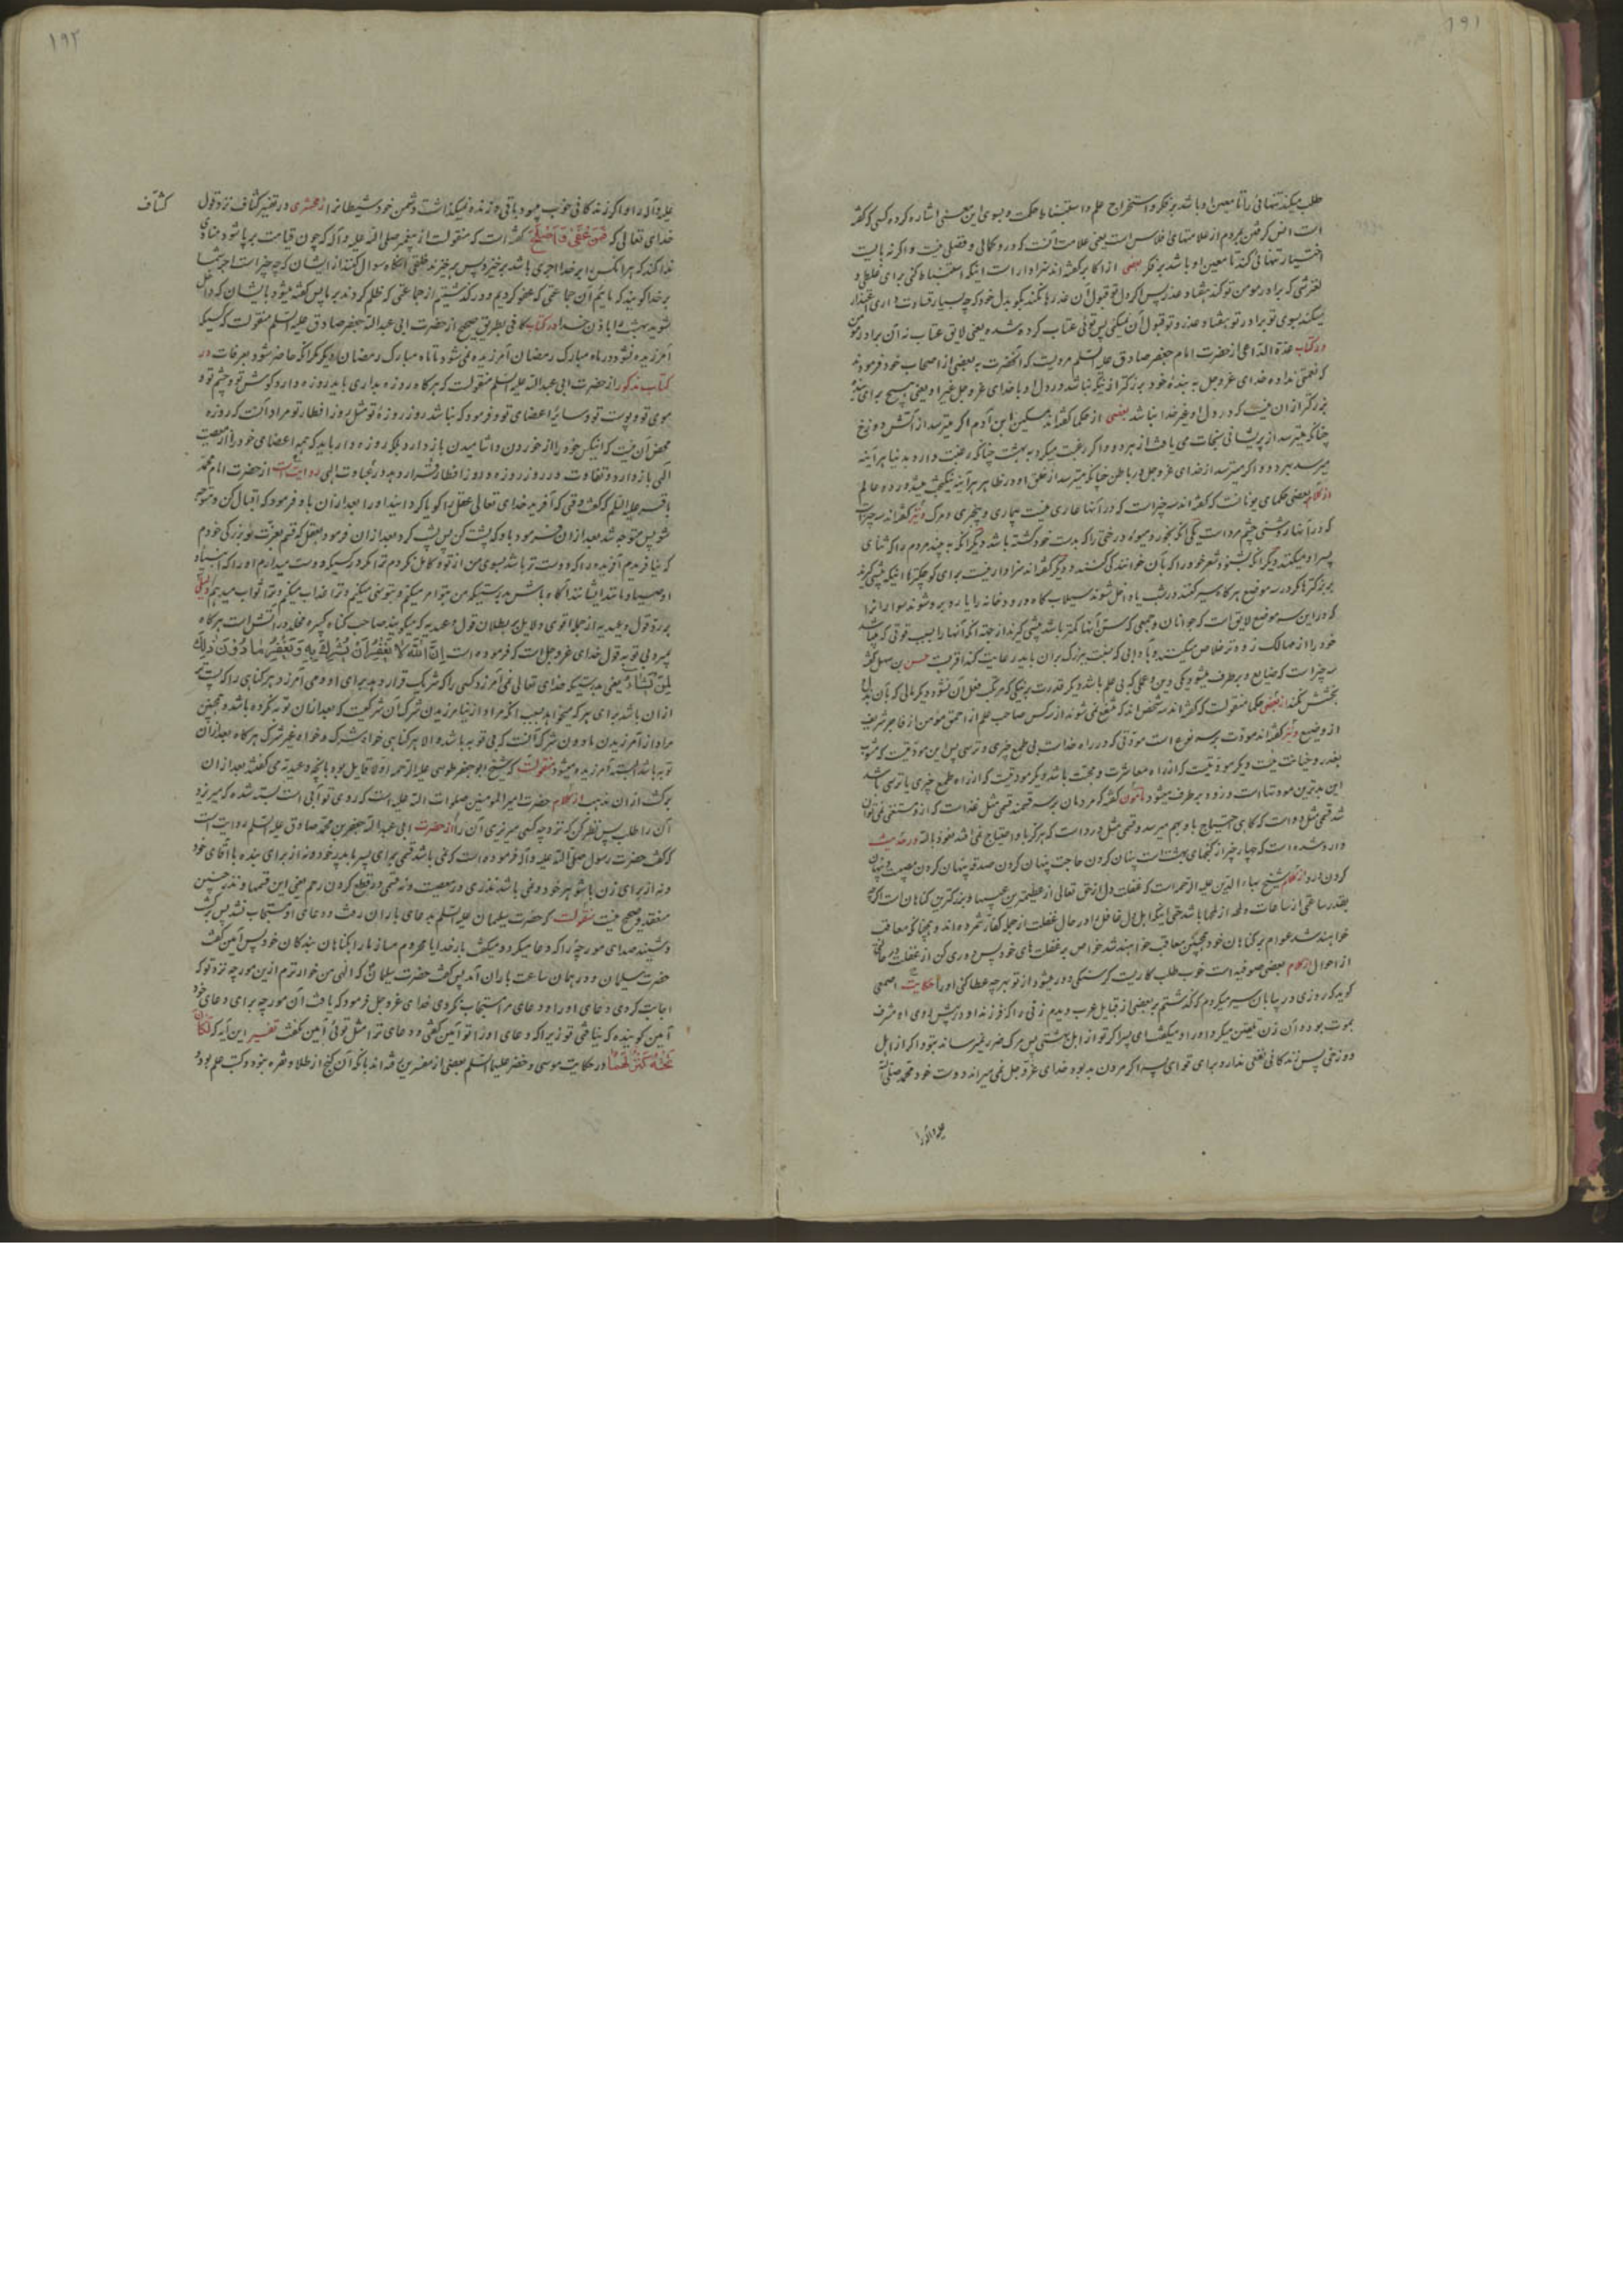 ۱۹۱
طلب میکند تنهائی را تا معین او باشد بر فکر و استخراج علم و استنباط حکمت و بسوی این معنی اشاره کرده کسی که گفته
است انس گرفتن بمردم از علامتهای افلاس است یعنی علامت آنست که در او کمالی و فضلی نیست و اگر نه بایست
اختیار تنهائی کند تا معین او باشد بر فکر بعضی از اکابر گفته‌اند سزاوار است اینکه استنباط کنی برای غلطی و
لغزشی که برادر مومن تو کند هفتاد عذر پس اگر دل تو قبول آن عذرها نکند بگو بدل خود که چه بسیار قساوت داری اعتذار
میکند بسوی تو برادر تو بهفتاد عذر و تو قبول آن نمیکنی پس توئی عتاب کرده شده یعنی لایق عتاب نه آن برادر مومن
در کتاب عدة الداعی از حضرت امام جعفر صادق علیه السلم مرویست که آنحضرت به بعضی از اصحاب خود فرموده
که نعمتی نداده خدای عز و جل به بنده خود بزرگتر از اینکه نباشد در دل او با خدای عز و جل غیر او یعنی هیچ برای بنده
بزرگتر از ان نیست که در دل او غیر خدا نباشد بعضی از حکما گفته‌اند مسکین ابن آدم اگر میترسد از آتش دوزخ
چنانکه میترسد از پریشانی نجات می یافت از هر دو و اگر رغبت میکرد به بهشت چنانکه رغبت دارد بدنیا هر آینه
میرسد بهر دو و اگر میترسد از خدای عز و جل در باطن چنانکه میترسد از خلق او در ظاهر هر آینه نیکبخت میشد در دو عالم
از کلام بعضی حکمای یونانست که گفته‌اند سه چیز است که در آنها عاری نیست بیماری و بیخبری و مرگ و نیز گفته‌اند سه چیز است
که در آنها روشنی چشم مرد است یکی آنکه بخورد میوه درختی را که بدست خود کشته باشد دیگر آنکه به بیند مردم را که ثنای
پسر او میکنند دیگر آنکه بشنود شعر خود را که بآن خوانندگی کنند و دیگر گفته‌اند سزاوار نیست برای کوچکتر ها اینکه پیشی گیرند
بر بزرگترها مگر در سه موضع هر گاه سیر کنند در شب یا داخل شوند سیلاب گاه و رودخانه را یا رو برو شوند سواران را
که در این سه موضع لایق است که جوانان و جمعی که سن آنها کمتر باشد پیشی گیرند از جهة آنکه آنها را بسبب قوتی که میباشد
خود را از مهالک زودتر خلاص میکنند و آدابی که نسبت بزرگ بر آن باید رعایت کند اقربست حسن بن سهل گفته
سه چیز است که ضایع و برطرف میشود یکی دین و علمی که بی علم باشد دیگر قدرت بر نیکی که مرتکب فعل آن نشود دیگر مالی که بآن بذل و
بخشش نکند از بعضی حکما منقولست که گفته‌اند سه شخص‌اند که منتفع نمی شوند از سه کس صاحب علم از احمق مؤمن از فاجر شریف
از وضیع و نیز گفته‌اند مودّت بر سه نوع است مودّتی که در راه خداست بی طمع چیزی و ترسی پس این مودتیست که مشوب
بغدر و خیانت نیست و دیگر مودتیست که از راه معاشرت و محبّت باشد دیگر مودتیست که از راه طمع چیزی یا ترسی باشد
این بدترین مودتهاست و زود برطرف میشود مأمون گفته که مردمان بر سه قسمند قسمی مثل غذا است که از او مستغنی نمیتوان
شد قسمی مثل دوا است که گاهی احتیاج باو بهم میرسد و قسمی مثل درد است که هرگز باو احتیاج نمی افتد نعوذ بالله در حدیث
وارد شده است که چهار چیز از گنجهای بهشت است پنهان کردن حاجت پنهان کردن صدقه پنهان کردن مصیبت و پنهان
کردن درد از کلام شیخ بهاء الدین علیه الرحمه است که غفلت دل از حق تعالی از عظیمترین عیبها و بزرگترین گناهان است اگرچه
بقدر ساعتی از ساعات و لمحه از لمحها باشد حتی اینکه اهل دل غافل را در حال غفلت از جمله کفار شمرده‌اند و همچنانکه معاقب
خواهند شد عوام بر گناهان خود همچنین معاقب خواهند شد خواص بر غفلتهای خود پس دوری کن از غفلت در حالی
از احوال از کلام بعضی صوفیه است خوب طلب کاریست گرسنگی دور میشود از تو بهر چه عطا کنی او را حکایت اصمعی
گوید که روزی در بیابان سیر میکردم که گذشتم بر بعضی از قبایل عرب دیدم زنی را که فرزند او در پیش روی او مشرف
بموت بود و آن زن تلقین میکرد او را و میگفت ای پسر اگر تو از اهل بهشتی پس مرگ ضرر نمیرساند بتو و اگر از اهل
دوزخی پس زندگانی نفعی ندارد برای تو ای پسر اگر مردن بد بود خدای عز و جل نمی میراند دوست خود محمد صلی الله
علیه و آله را
۱۹۲
علیه و آله را و اگر زندگانی خوب میبود باقی و زنده نمیگذاشت دشمن خود شیطان را زمخشری در تفسیر کشاف نزد قول
کشاف
خدای تعالی که فَمَنْ عَفَى وَ اَصْلَحَ گفته است که منقولست از پیغمبر صلی الله علیه و آله که چون قیامت بر پا شود منادی
ندا کند که هر آنکس را بر خدا اجری باشد بر خیزد پس بر خیزند خلقی آنگاه سوال کنند از ایشان که چه چیز است اجر شما
بر خدا گویند که ما ئیم آن جماعتی که عفو کردیم و در گذشتیم از جماعتی که ظلم کردند بر ما پس گفته میشود بایشان که داخل
شوید بهشت را باذن خدا در کتاب کافی بطریق صحیح از حضرت ابی عبد الله جعفر صادق علیه السلم منقولست که کسی که
آمرزیده نشود در ماه مبارک رمضان آمرزیده نمی شود تا ماه مبارک رمضان دیگر مگر آنکه حاضر شود بعرفات در
کتاب مذکور از حضرت ابی عبد الله علیه السلم منقولست که هر گاه روزه بداری باید روزه دارد گوش تو و چشم تو و
موی تو و پوست تو و سایر اعضای تو و فرمود که نباشد روز روزهٔ تو مثل روز افطار تو مراد آنست که روزه
محض آن نیست که آنکس خود را از خوردن و اشامیدن باز دارد بلکه روزه دار باید که همه اعضای خود را از معصیت
الهی باز دارد و تفاوت در روز روزه و روز افطار قرار دهد در عبادت الهی روایتست از حضرت امام محمد
باقر علیه السلم که گفت وقتی که آفرید خدای تعالی عقل را گویا گردانید او را بعد از ان باو فرمود که اقبال کن و متوجه
شو پس متوجه شد بعد از ان فرمود باو که پشت کن پس پشت کرد بعد از ان فرمود بعقل که قسم بعزّت و بزرگی خودم
که نیافریدم آفریده را که دوست تر باشد بسوی من از تو و کامل نکردم ترا مگر در کسیکه دوست میدارم او را که انبیاء و
اوصیا و مانند ایشانند آگاه باش بدرستیکه من بتو امر میکنم و بتو نهی میکنم و ترا عذاب میکنم و بتو ثواب میدهم دلیلی
بر ردّ قول وعیدیه از جمله اقوی دلایل بر بطلان قول وعیدیه که میگویند صاحب گناه کبیره مخلد در آتش است هر گاه
بمیرد بی توبه قول خدای عز و جل است که فرموده است اِنَّ اللّٰهَ لا یَغْفِرُ اَنْ یُشْرَكَ بِهِ وَ یَغْفِرُ مَا دُونَ ذٰلِكَ
لِمَنْ یَشَاءُ یعنی بدرستیکه خدای تعالی نمی آمرزد کسی را که شریک قرار دهد برای او و می آمرزد هر گناهی را که پست تر
از ان باشد برای هر که میخواهد بسبب آنکه مراد از نیامرزیدن شرک آن شرکیست که بعد از ان توبه نکرده باشد و همچنین
مراد از آمرزیدن مادون شرک آنست که بی توبه باشد و الا هر گناهی خواه شرک و خواه غیر شرک هر گاه بعد از ان
توبه باشد البته آمرزیده میشود منقولست که شیخ ابو جعفر طوسی علیه الرحمه اولا قایل بود بانچه وعیدیه می گفتند بعد از ان
برگشت از ان مذهب از کلام حضرت امیر المومنین صلوات الله علیه است که روی تو آبی است بسته شده که میریزد
آن را طلب پس نظر کن که نزد چه کسی میریزی آن را از حضرت ابی عبد الله جعفر بن محمد صادق علیه السلم روایت است
که گفت حضرت رسول صلی الله علیه و آله فرموده است که نمی باشد قسمی برای پسر با پدر خود و نه از برای بنده با آقای خود
و نه از برای زن با شوهر خود و نمی باشد نذری در معصیت و نه قسمی در قطع کردن رحم یعنی این قسمها و نذر چنین
منعقد و صحیح نیست منقولست که حضرت سلیمان علیه السلم بدعای باران رفت و دعای او مستجاب نشد پس برگشت
و شنید صدای مورچه را که دعا میکرد و میگفت بار خدایا محروم مساز ما را بگناهان بندگان خود پس آمین گفت
حضرت سلیمان و در همان ساعت باران آمد پس گفت حضرت سلیمان که الهی من خوارترم ازین مورچه نزد تو که
اجابت کردی دعای او را و دعای مرا مستجاب نکردی خدای عز و جل فرمود که یافت آن مورچه برای دعای خود
آمین گوینده که نیافتی تو زیرا که دعای او را تو آمین گفتی و دعای ترا مثل توئی آمین نگفت تفسیر این آیه که وَ كَانَ
تَحْتَهُ كَنْزٌ لَهُمَا در حکایت موسی و خضر علیهما السلم بعضی از مفسرین رفته‌اند بانکه آن گنج از طلا و نقره نبود و کتب علم بود